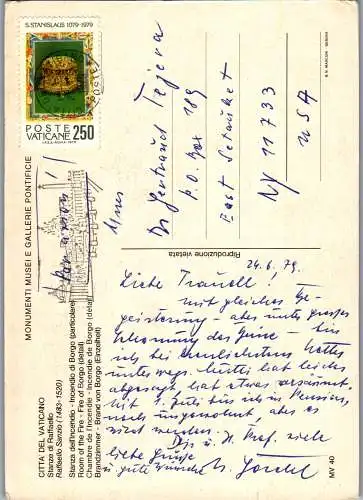 S. STANISLAUS 1079-1979
POSTE
VATICANE 250
MONUMENTI MUSEI E GALLERIE PONTIFICIE
CITTÀ DEL VATICANO
Stanze di Raffaello
Raffaello Sanzio (1483-1520)
Stanza dell'Incendio - Incendio di Borgo (particolare)
Room of the Fire - Fire of Borgo (detail)
Chambre de l'Incendie - Incendie de Borgo (détail)
Brandzimmer - Brand von Borgo (Einzelheit)
Riproduzione vietata
MV 40
par avion!
Dr Gertraud Tejera
P.O. Box 189
East Setauket
NY 11733
USA
24.6.79.
Liebe Traudl!
mit gleicher Be-
geisterung - aber unter großer
Schonung der Beine - bin
ich bei herrlichstem Wetter
unterwegs.
hat leider
abgesagt, hat etwas versäumt.
1. Juli bin ich in Pension,
noch ungewohnt, aber es
wird.
Dir u. Prof. viele
liebe Grüße
u. gute Wünsche